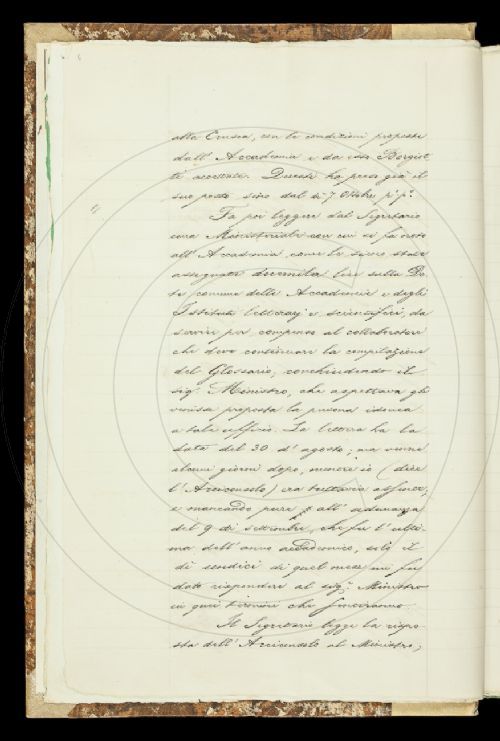 alla Crusca, con le condizioni proposte
dall' Accademia e da esso Borgiot
ti accettate. Questi ha preso già il
suo posto sino dal dì 7 Ottobre p.° p.°
Fa poi leggere dal Segretario
una Ministeriale con cui si fa noto
all' Accademia come le sieno state
assegnate diecimila lire sulla Do
te comune delle Accademie e degli
Istituti letterarj e scientifici, da
servire per compenso al collaboratore
che deve continuare la compilazione
del Glossario, conchiudendo il
sig. Ministro, che aspettava gli
venisse proposta la persona idonea
a tale ufficio. La lettera ha la
data del 30 d' agosto, ma venne
alcuni giorni dopo, mentre io (dice
l' Arciconsolo) era tuttavia assente,
e mancando però all' adunanza
del 9 di settembre, che fu l' ulti-
ma dell' anno accademico, solo il
dì sendici di quel mese mi fu
dato rispondere al sig. Ministro
in quei termini che
Il Segretario legge la rispo-
sta dell' Arciconsolo al Ministro,